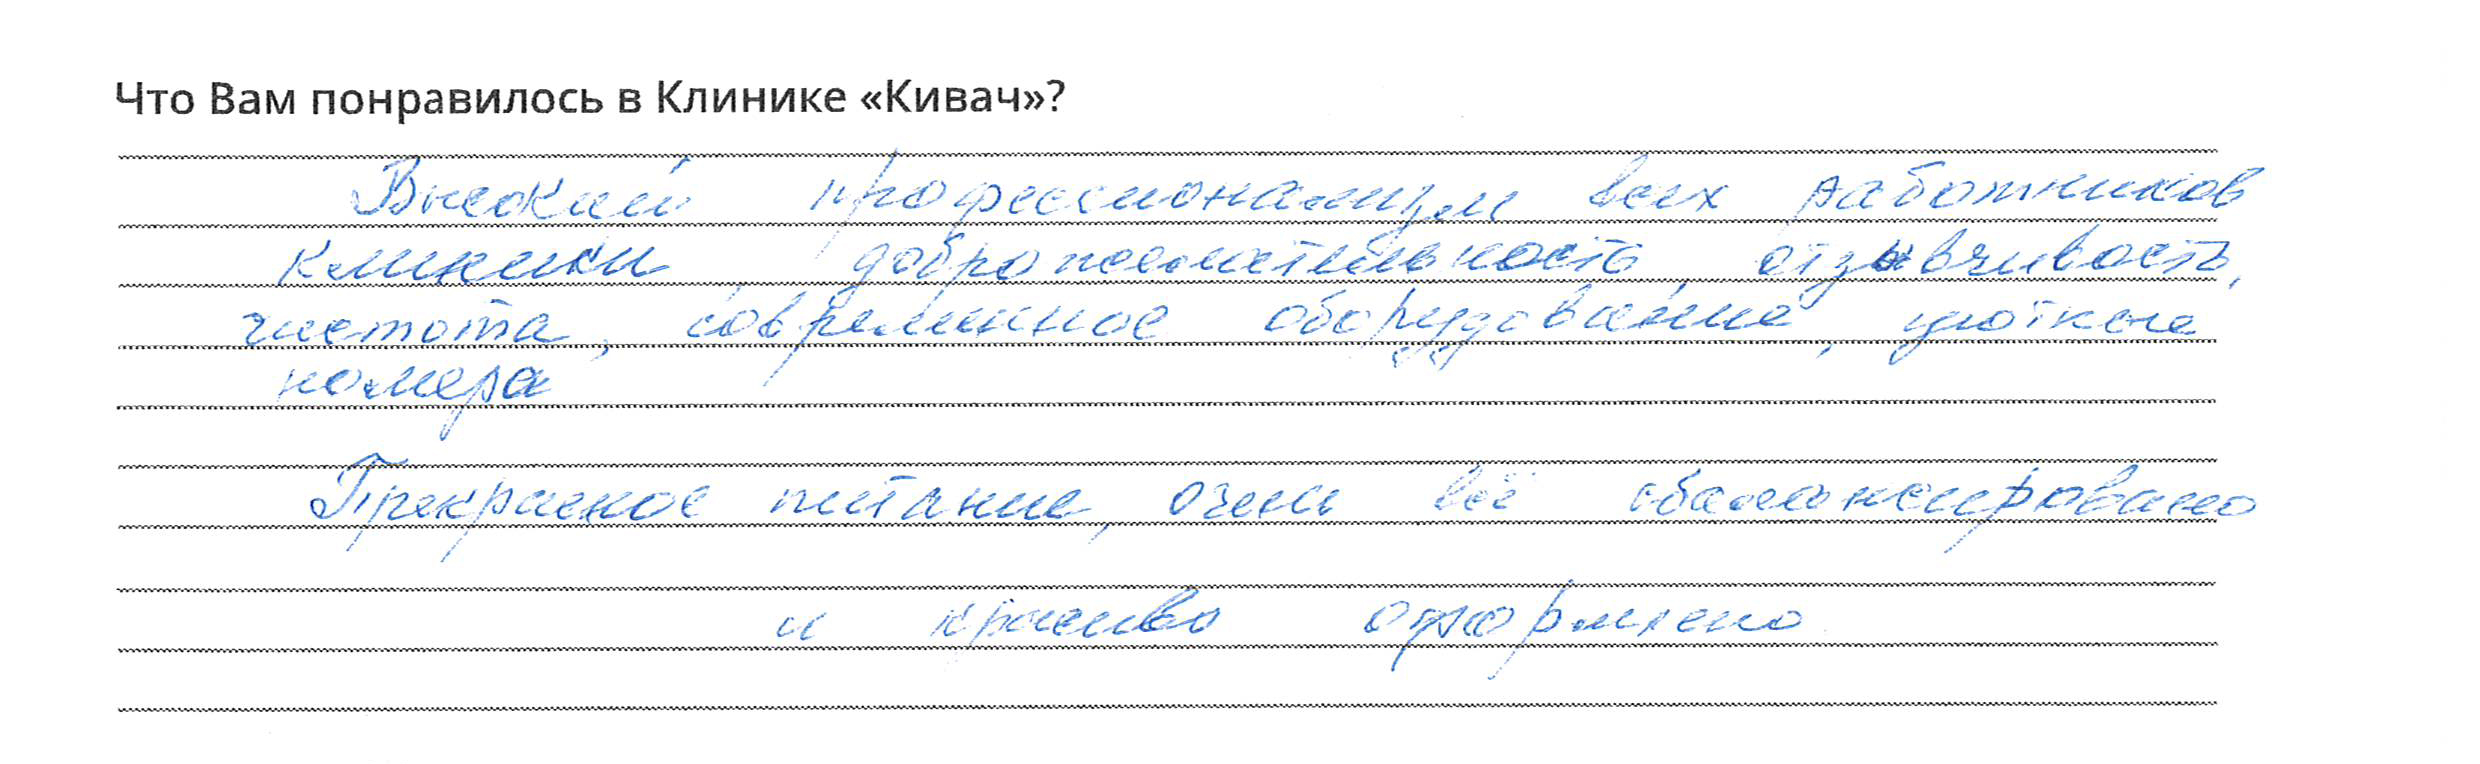 Что Вам понравилось в Клинике «Кивач»?
Высокий профессионализм всех работников
клиники, доброжелательность, отзывчивость,
чистота, современное оборудование, уютные
номера
Прекрасное питание, очень всё сбалансировано
и красиво оформлено